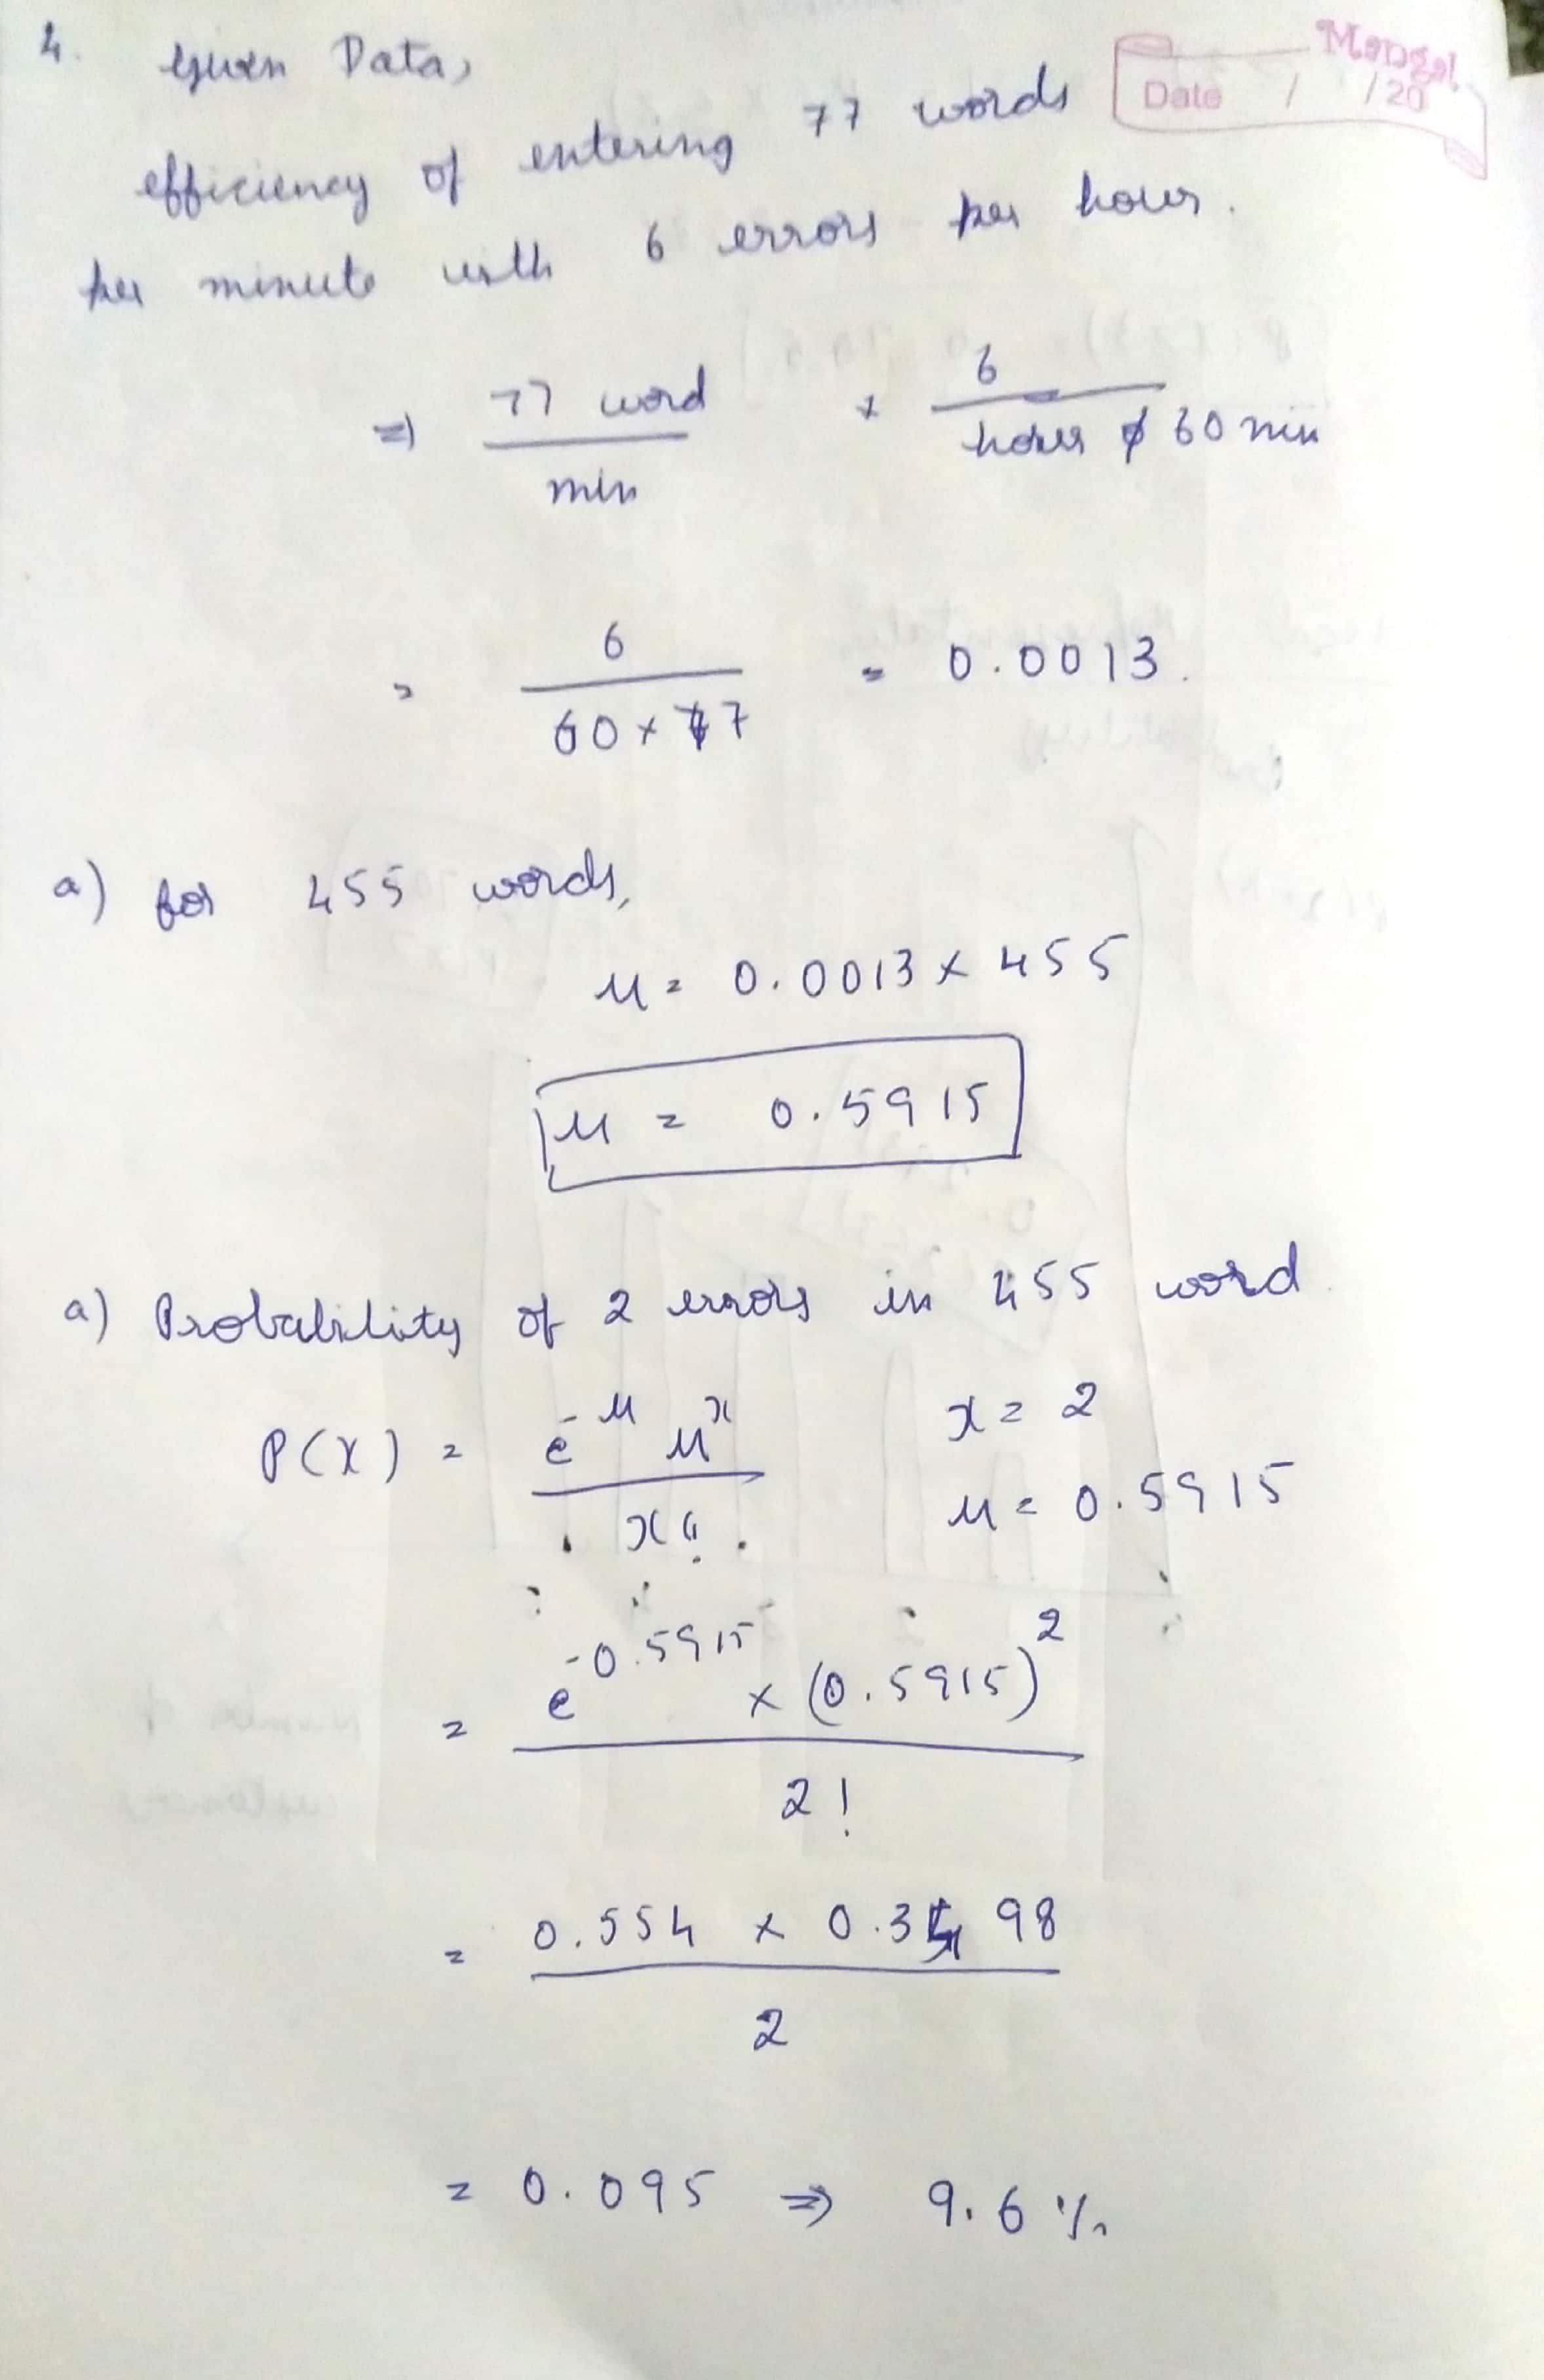 4. Given Data,
Mangal
Date / /20
efficiency of entering 77 words
per minute with 6 errors per hour.
=) 77 word / min × 6 / hour 60 min
= 6 / 60 × 77 = 0.0013.
a) for 455 words,
μ = 0.0013 × 455
μ = 0.5915
a) Probability of 2 errors in 455 word
P(X) = e^-μ μ^x / x! x = 2
μ = 0.5915
= e^-0.5915 × (0.5915)^2 / 2!
= 0.554 × 0.3498 / 2
= 0.095 => 9.6 %